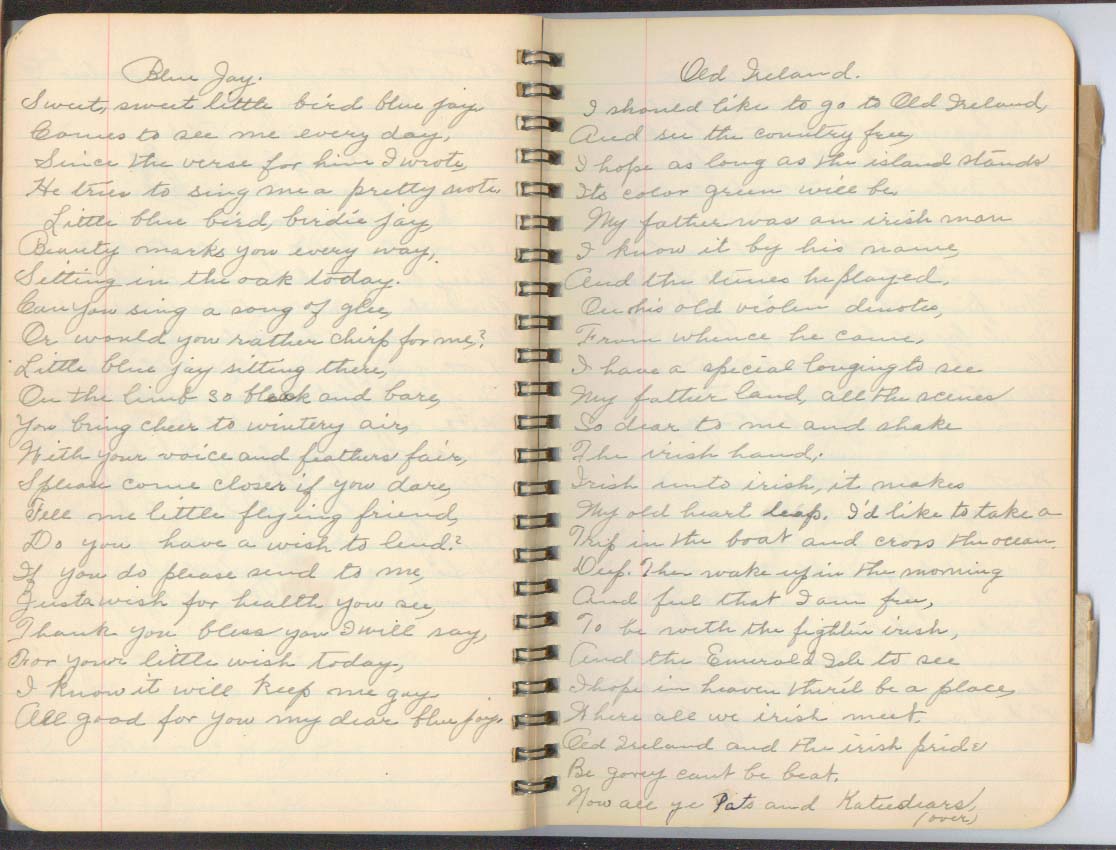 Blue Jay.
Sweet, sweet little bird blue jay
Comes to see me every day,
Since the verse for him I wrote,
He tries to sing me a pretty note,
Little blue bird, birdie jay,
Beauty marks you every way,
Sitting in the oak today.
Can you sing a song of glee,
Or would you rather chirp for me?
Little blue jay sitting there,
On the limb so bleak and bare,
You bring cheer to wintery air,
With your voice and feathers fair,
please come closer if you dare,
Tell me little flying friend,
Do you have a wish to lend?
If you do please send to me,
Just a wish for health you see,
Thank you bless you I will say,
For your little wish today,
I know it will keep me gay
All good for you my dear blue jay.
Old Ireland.
I should like to go to Old Ireland,
And see the country free,
I hope as long as the island stands
Its color green will be
My father was an irish man
I know it by his name,
And the tunes he played.
On his old violin denotes,
From whence he came,
I have a special longing to see
My father land, all the scenes
So dear to me and shake
The irish hand,
Irish unto irish, it makes
My old heart leap. I'd like to take a
Trip in the boat and cross the ocean
Deep. Then wake up in the morning
And feel that I am free,
To be with the fightin irish,
And the Emerald Isle to see
I hope in heaven there'l be a place,
Where all we irish meet.
Old Ireland and the irish pride
Be gorey cant be beat.
Now all ye Pats and Katie dears,
(over)